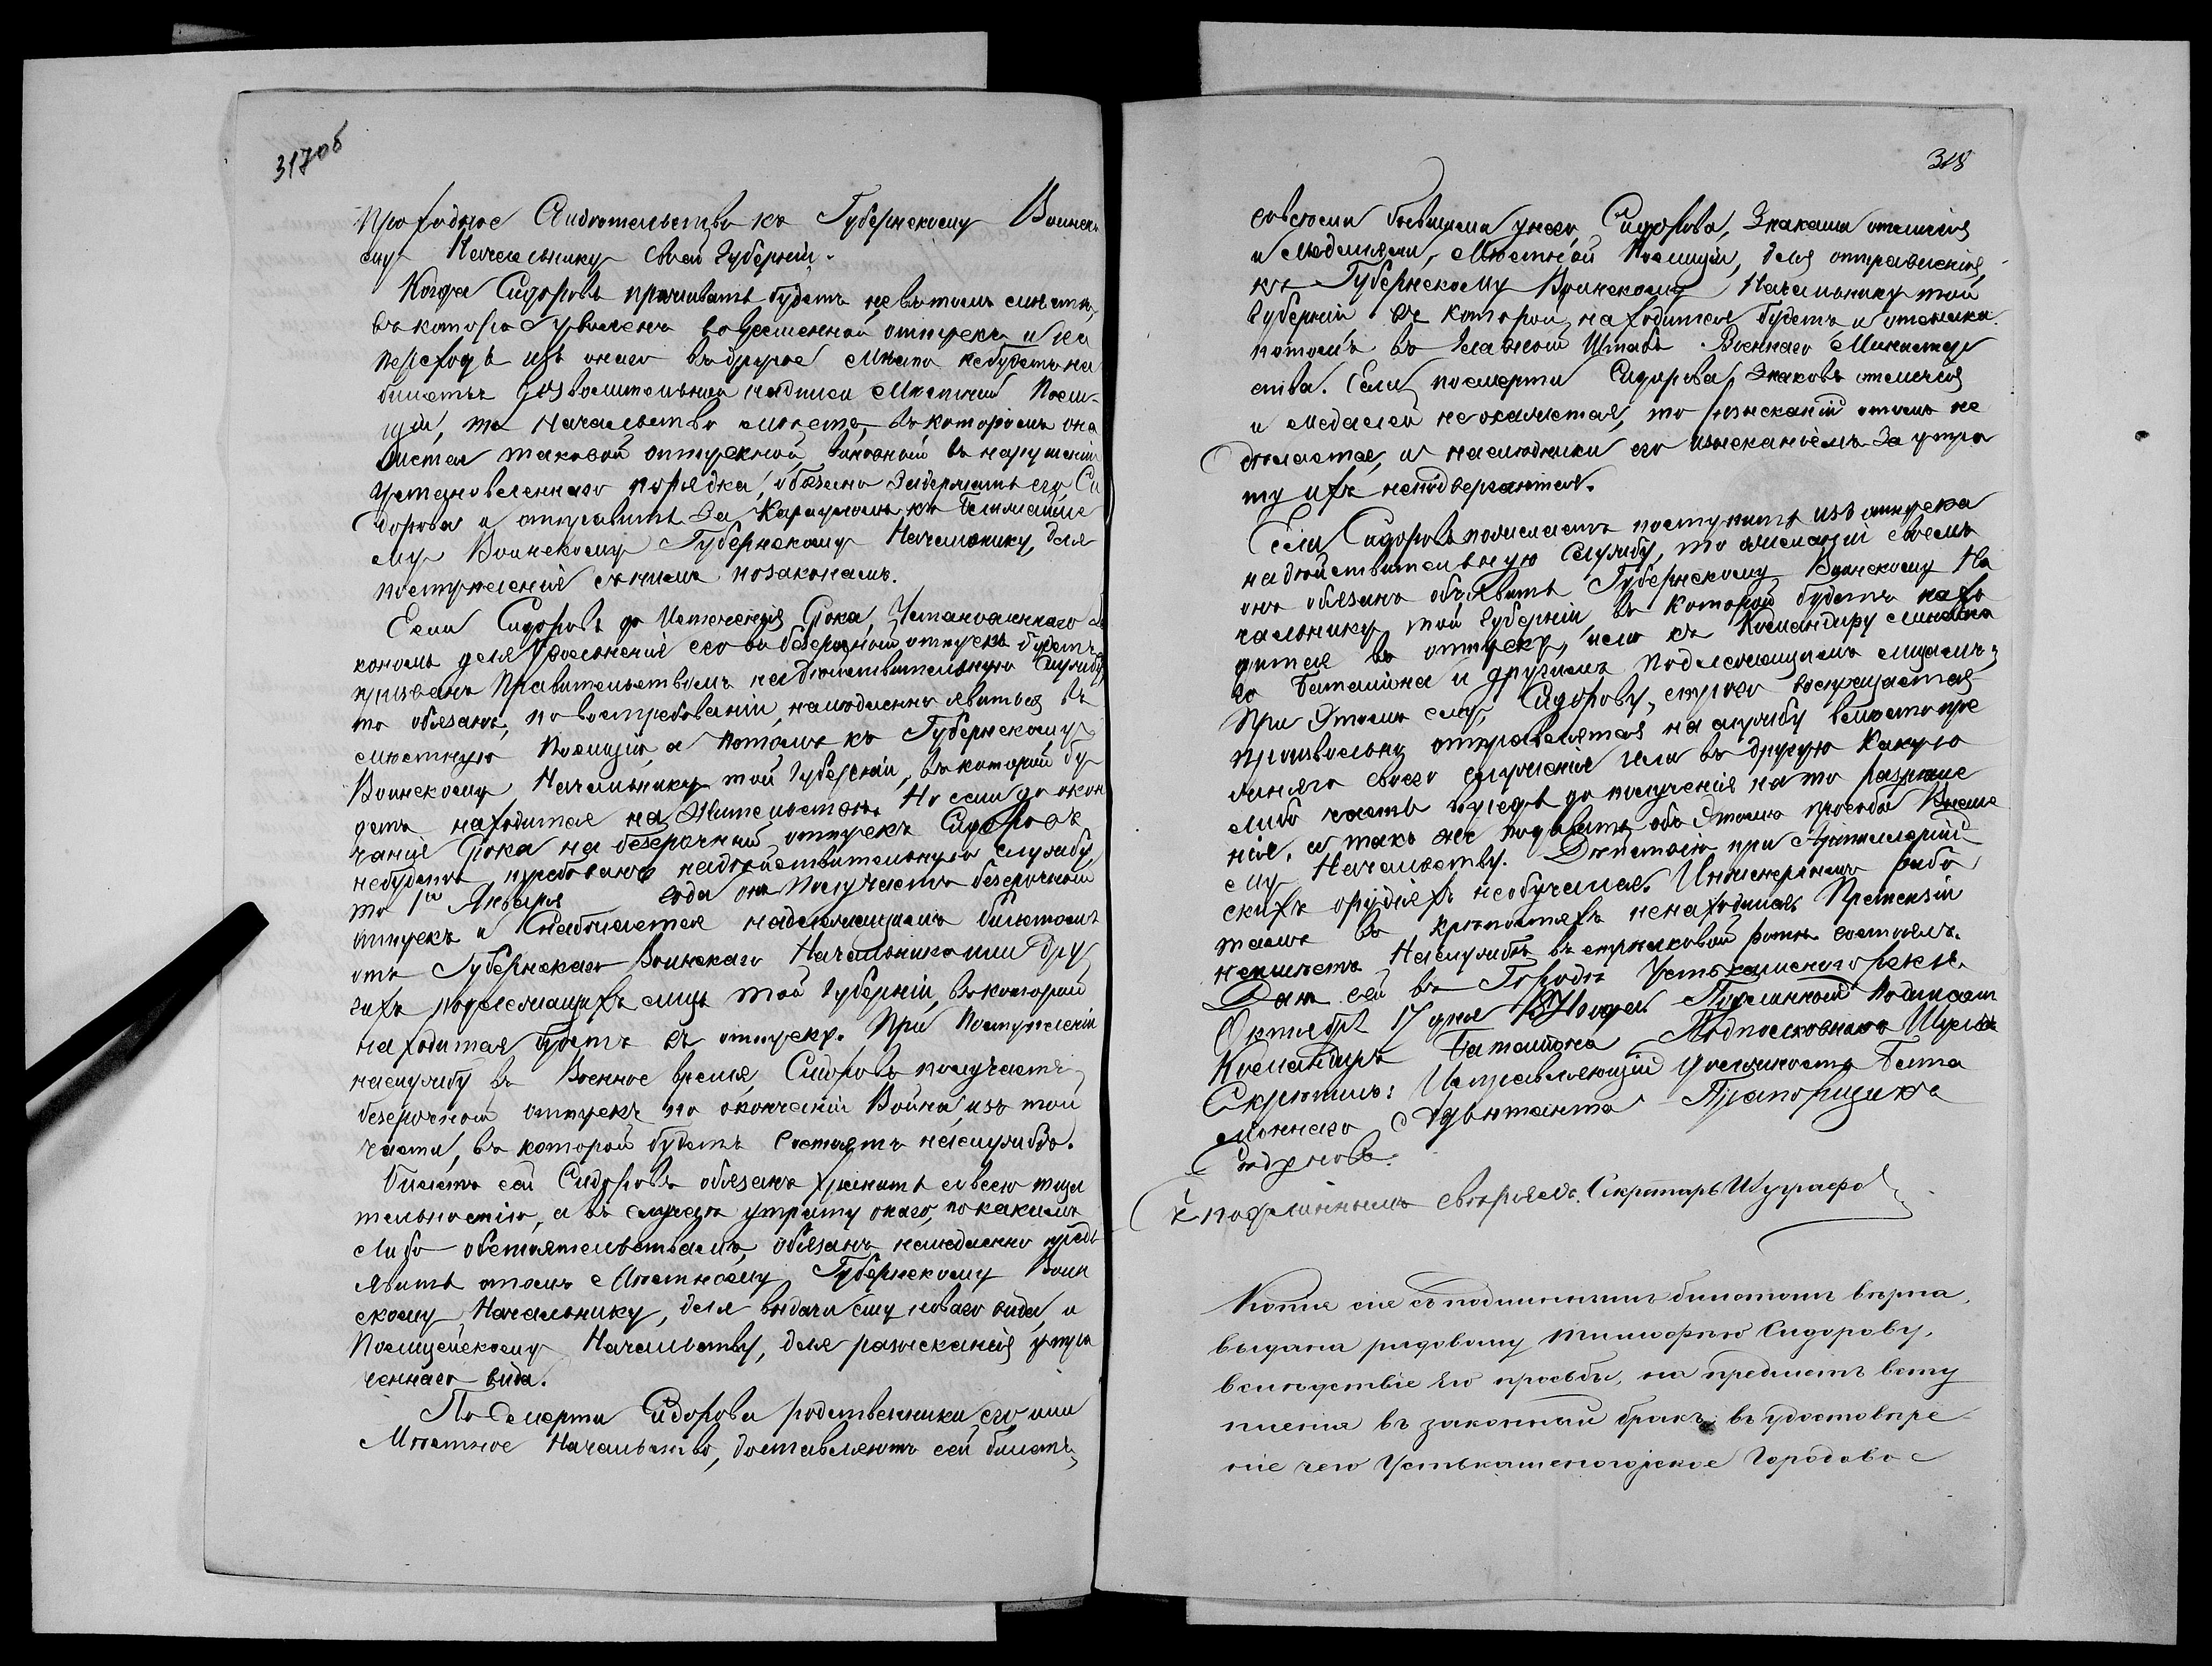 317об
Проходное Свидетельство къ Губернскому Воинско
му Начальнику своей Губерніи.
Когда Сидоровъ проживать будетъ не въ томъ мѣстѣ,
въ которое уволенъ во временной отпускъ и на
переходъ изъ онаго въ другое мѣсто небудетъ на
билетѣ дозволительной надписи Мѣстной Поли-
ціи, то Начальство мѣста, въ которомъ ока
жется таковой отпускной, виновный въ нарушеніи
установленнаго порядка, обязано задержать его, Си
дорова и отправить за Карауломъ къ Ближайше
му Воинскому Губернскому Начальнику, для
поступленія съ нимъ позаконамъ.
Если Сидоровъ до Истеченія Срока, Установленнаго за
кономъ для Увольненія его въ безсрочный отпускъ будетъ
призванъ Правительствомъ на Дѣйствительную Службу
то обязанъ, по востребованіи, немедленно явиться въ
мѣстную Полицію, а потомъ къ Губернскому
Воинскому Начальнику той Губерніи, въ которой бу
детъ находится на Жительствѣ. Но если до окон
чанія Срока на безсрочный отпускъ Сидоровъ
небудетъ требованъ на дѣйствительную службу,
то 1го Января года онъ Получаетъ безсрочный
отпускъ и Снабжается надлежащимъ билетомъ
отъ Губернскаго Воинскаго Начальника или дру
гихъ подлежащихъ лицъ той Губерніи, въ которой
находится будетъ въ отпуску. При Поступленіи
на службу въ Военное время, Сидоровъ получаетъ
безсрочной отпускъ по окончаніи Войны, изъ той
части, въ которой будетъ Состоять на службѣ.
Билетъ сей Сидоровъ обязанъ хранить со всею тща
тельностію, а въ случаѣ утраты онаго, по какимъ
либо обстоятельствамъ, обязанъ немедленно предъ
явить о томъ Мѣстному Губернскому Воин
скому Начальнику, для выдачи ему новаго вида, и
Полицейскому Начальству, для разысканія утра
ченнаго вида.
По Смерти Сидорова родственники его или
Мѣстное Начальство, доставляютъ сей билетъ,
318
со всѣми бывшими у него, Сидорова, Знаками отличія
и Медалями, Мѣстной Полиціи, для отправленія,
къ Губернскому Воинскому Начальнику той
Губерніи въ которой находится будетъ и отсылки
потомъ въ Главной Штабъ Военнаго Министер
ства. Если посмерти Сидорова, Знаковъ отличія
и медалей не окажется, то розысканій о томъ не
дѣлается, и наслѣдники его взысканіемъ за утра
ту ихъ неподвергаются.
Если Сидоровъ пожелаетъ поступить изъ отпуска
на дѣйствительную Службу, то о желаніи своемъ
онъ обязанъ объявить Губернскому Воинскому На
чальнику той Губерніи, въ которой будетъ нахо
дится въ отпуску, или къ Командиру линейна
го Баталіона и другимъ Подлежащимъ лицамъ;
При Этомъ ему, Сидорову, строго воспрещается
произвольно отправлятся на службу вмѣсто пре
жняго своего служенія или въ другую какую
либо часть прежде до полученія на то разрѣше
нія, а такъ же подавать объ этомъ просьбы Высше
му Начальству. Дѣйствію при Артиллерій
скихъ орудіяхъ необучался. Инженернымъ рабо
тамъ въ крѣпостяхъ ненаходился Претензій
неимѣетъ На службѣ въ стрѣлковой ротѣ состоялъ.
Данъ сей въ Городѣ Устькаменогорскѣ.
Октября 17 дня Года. Подлинной подписалъ
Командиръ Баталіона Подполковникъ
Скрѣпилъ: Исправляющій Должность Бата
ліоннаго Адъютанта Прапорщикъ
Съ подлиннымъ свѣрялъ: Секретарь
Копія сія съ подлиннымъ билетомъ вѣрна,
выдана рядовому Тимофею Сидорову,
вслѣдствіе его просьбы, на предметъ всту
пленія въ законный бракъ, въ удостовѣре-
ніе чего Устькаменогорское Городовое